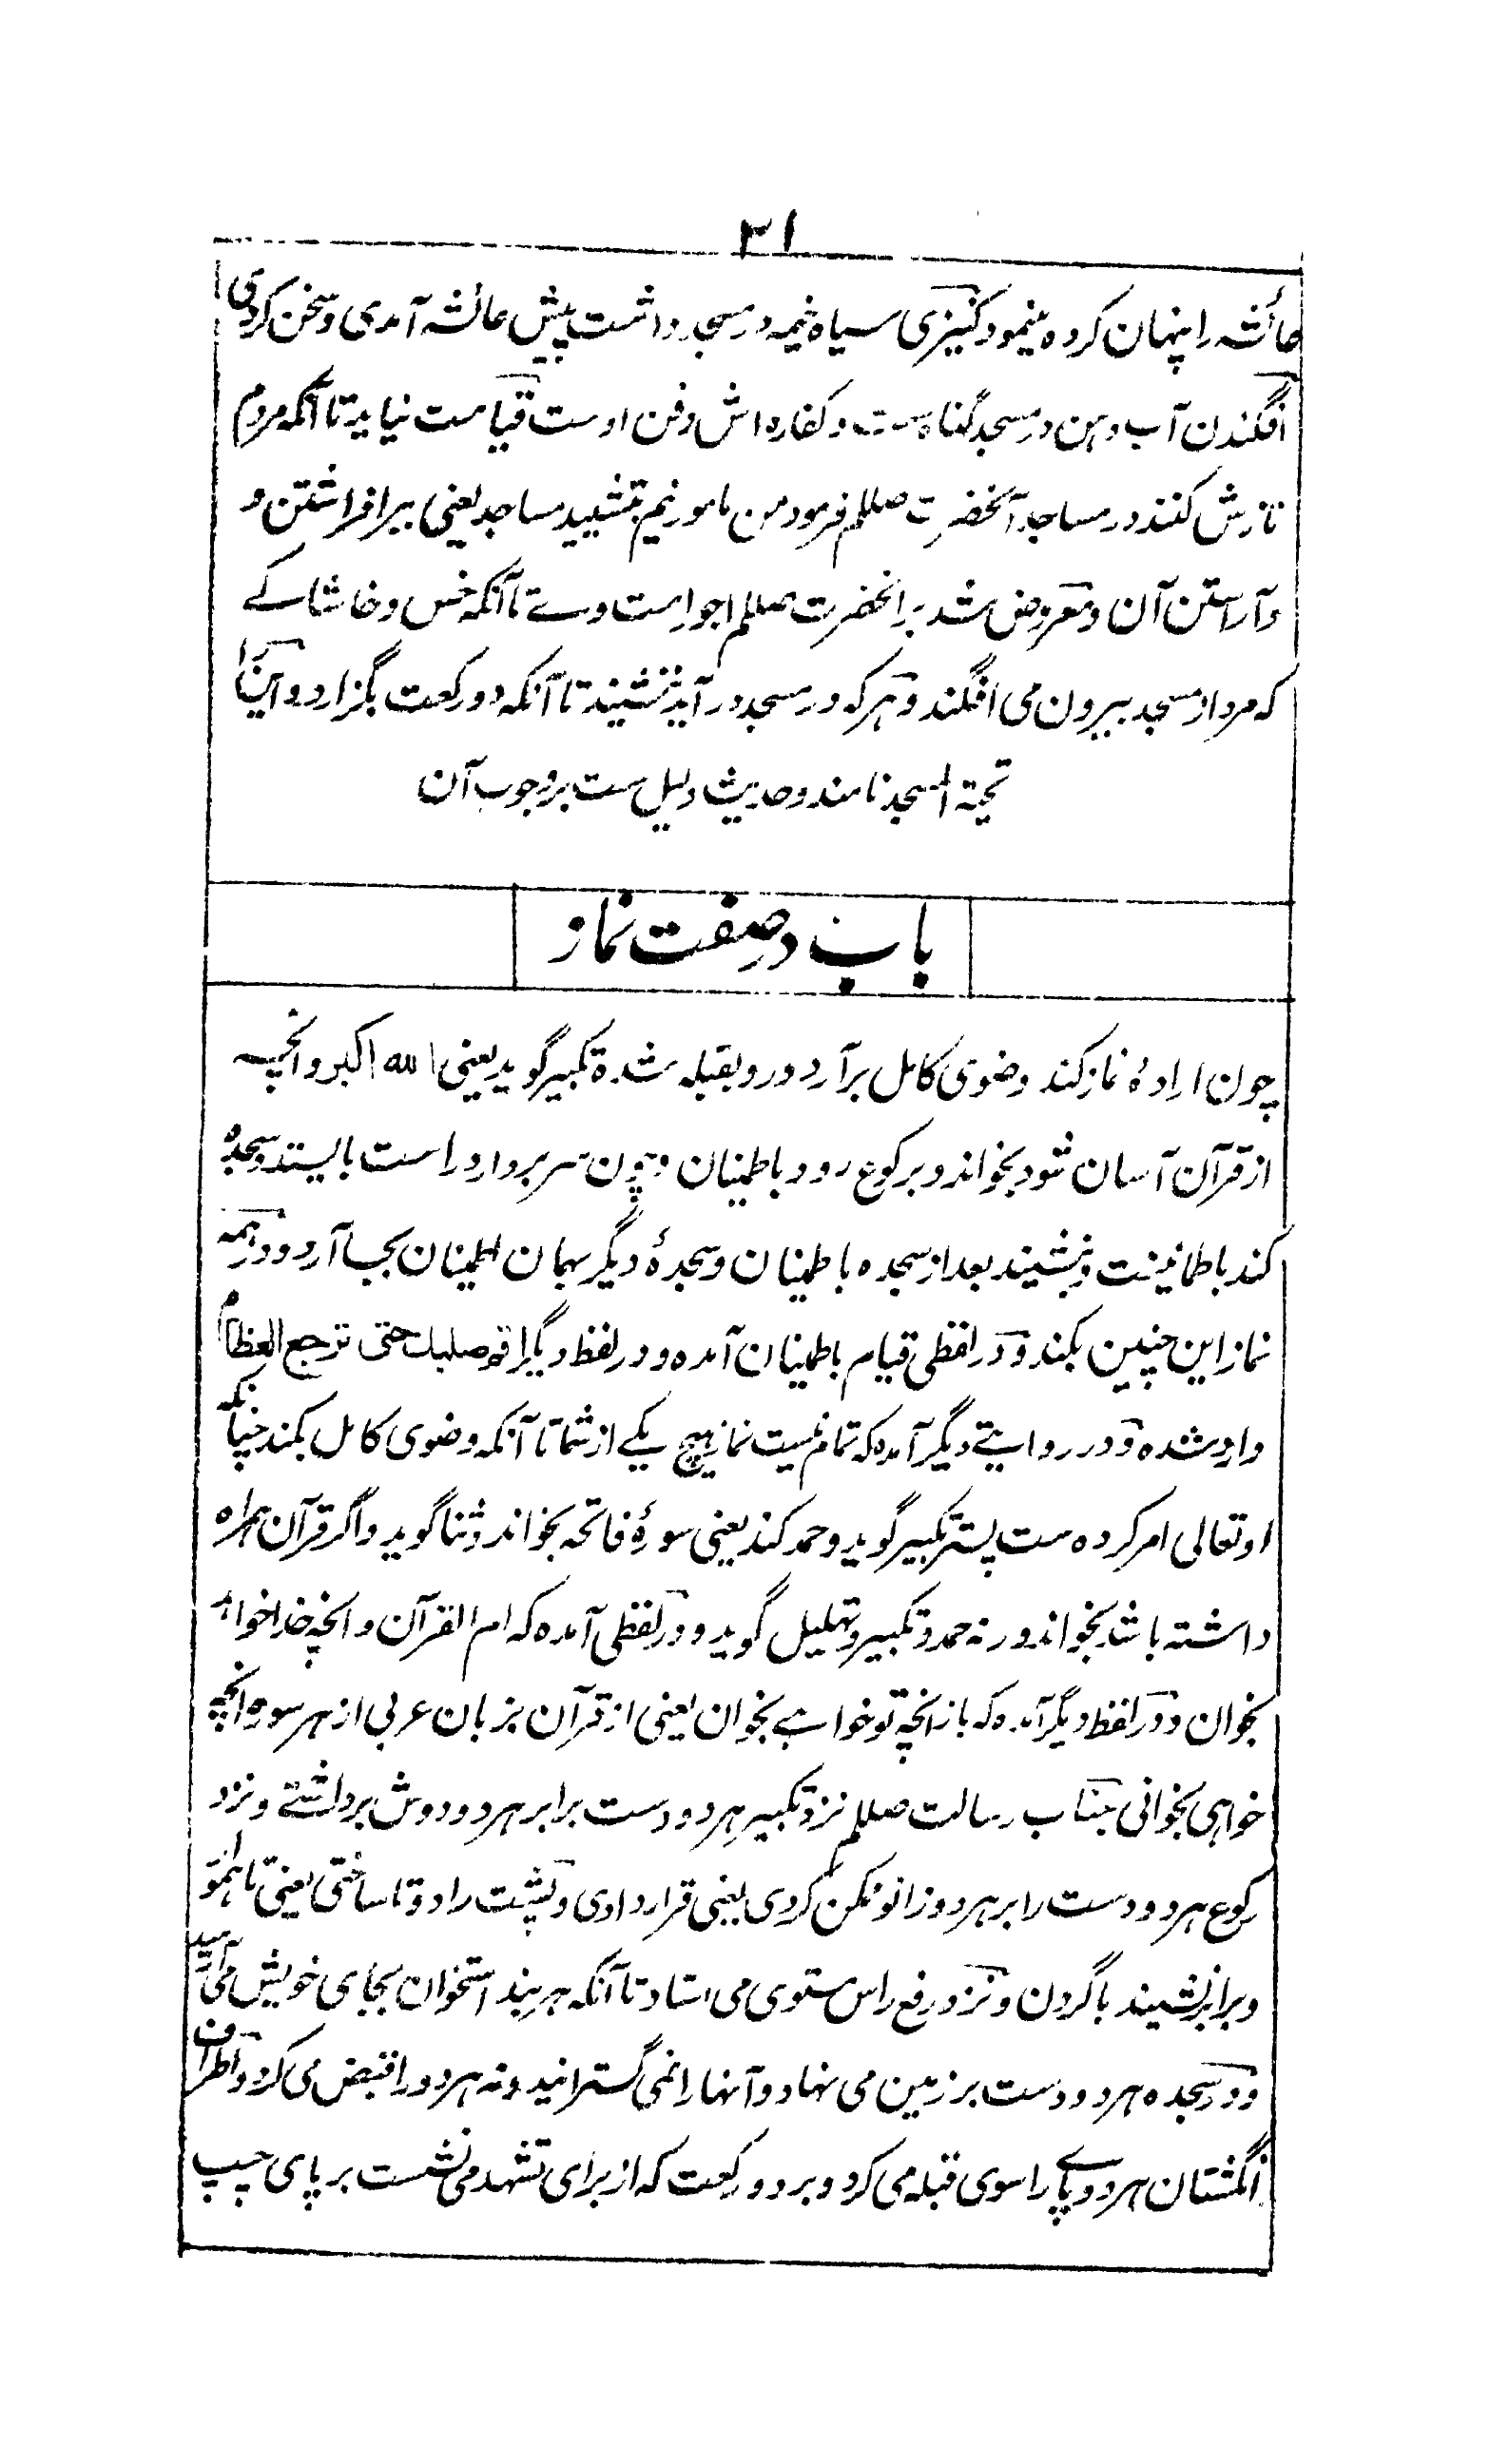 ۳۱
عائشه را پنهان کرده مینمود کنیزی سیاه خیمه در مسجد داشت پیش عائشه آمدی و سخن کردی
افگندن آب دهن در مسجد گناه ست و کفاره اش دفن اوست قیامت نیاید تا آنکه مردم
نازش کنند در مساجد آنحضرت صللم فرمود من مامور نیم بتشیید مساجد یعنی ببرافراشتن و
و آراستن آن و معروض شد بر آنحضرت صللم اجور امت وے تا آنکه خس و خاشاکے
که مرد از مسجد بیرون می افگند و هر که در مسجد در آید ننشیند تا آنکه دو رکعت بگزارد و این را
تحیة المسجد نامند و حدیث دلیل ست بر وجوب آن
باب در صفت نماز
چون ارادهٔ نماز کند وضوی کامل برآرد و رو بقبله شده تکبیر گوید یعنی الله اکبر و انچه
از قرآن آسان شود بخواند و برکوع رود باطمینان و چون سر بردارد راست بایستد و سجده
کند باطمانینت و بنشیند بعد از سجده باطمینان و سجدهٔ دیگر بهمان اطمینان بجا آرد و در همه
نماز این چنین بکند و در لفظی قیام باطمینان آمده و در لفظ دیگر اقم صلبك حتی ترجع العظام
وارد شده و در روایتے دیگر آمده که تمام نیست نماز هیچ یکے از شما تا آنکه وضوی کامل بکند چنانکه
او تعالی امر کرده ست پستر تکبیر گوید و حمد کند یعنی سورهٔ فاتحه بخواند و ثنا گوید و اگر قرآن همراه
داشته باشد بخواند ورنه حمد و تکبیر و تهلیل گوید و در لفظی آمده که ام القرآن و انچه خدا خواهد
بخوان و در لفظ دیگر آمده که باز انچه تو خواهے بخوان یعنی از قرآن بزبان عربی از هر سوره انچه
خواهی بخوانی جناب رسالت صللم نزد تکبیر هر دو دست برابر هر دو دوش برداشتے و نزد
رکوع هر دو دست را بر هر دو زانو ممکن کردی یعنی قرار دادی و پشت را دوتا ساختی یعنی تا هموار
و برابر نشیند با گردن و نزد رفع راس مستوی می استاد تا آنکه هر بند استخوان بجای خویش می آمد
و در سجده هر دو دست بر زمین می نهاد و آنها را نمی گسترانید و نه هر دو را قبض می کرد و اطراف
انگشتان هر دو پاے را سوی قبله می کرد و بر دو رکعت که از برای تشهد می نشست بر پای چپ